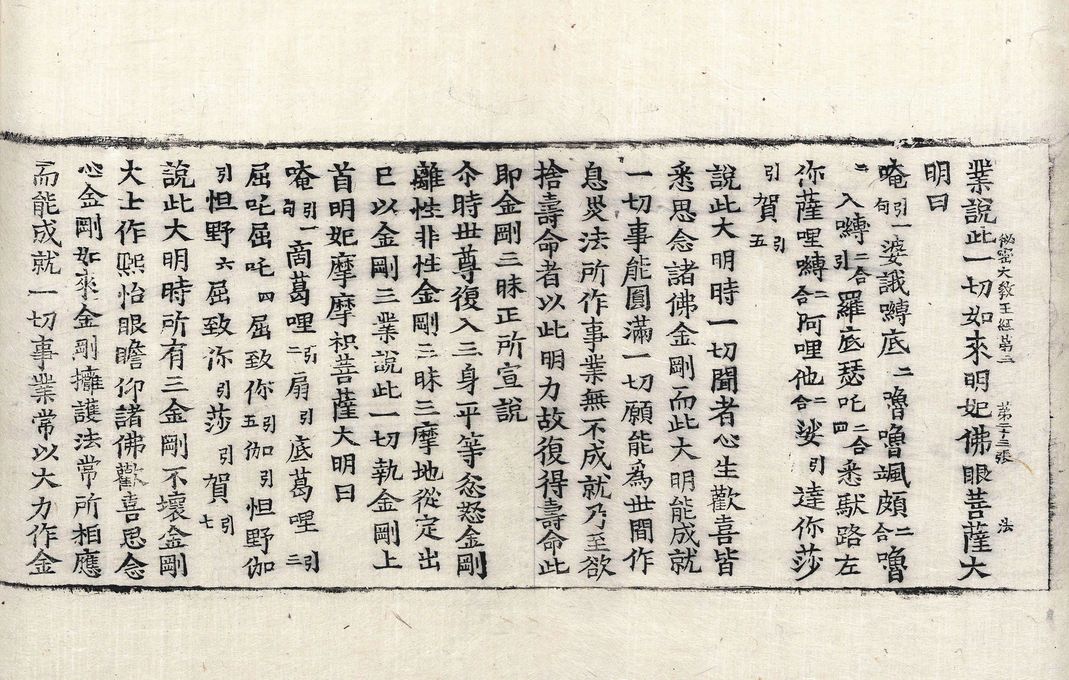 秘密大教王經第二 第二十三張 法
業說此一切如來明妃佛眼菩薩大
明曰
唵引一句婆誐嚩底二嚕嚕颯頗二合嚕
三入嚩二合引羅底瑟吒二合四悉馱路左
你薩哩嚩二合阿哩他二合娑引達你莎
引賀引五
說此大明時一切聞者心生歡喜皆
悉思念諸佛金剛而此大明能成就
一切事能圓滿一切願能為世間作
息災法所作事業無不成就乃至欲
捨壽命者以此明力故復得壽命此
即金剛三昧正所宣說
尒時世尊復入三身平等忿怒金剛
離性非性金剛三昧三摩地從定出
已以金剛三業說此一切執金剛上
首明妃摩摩枳菩薩大明曰
唵引一句商葛哩引二扇引底葛哩引三
屈吒屈吒四屈致你引五伽引怛野伽
引怛野六屈致沵引莎引賀引七
說此大明時所有三金剛不壞金剛
大士作熈怡眼瞻仰諸佛歡喜思念
心金剛如來金剛擁護法常所相應
而能成就一切事業常以大力作金